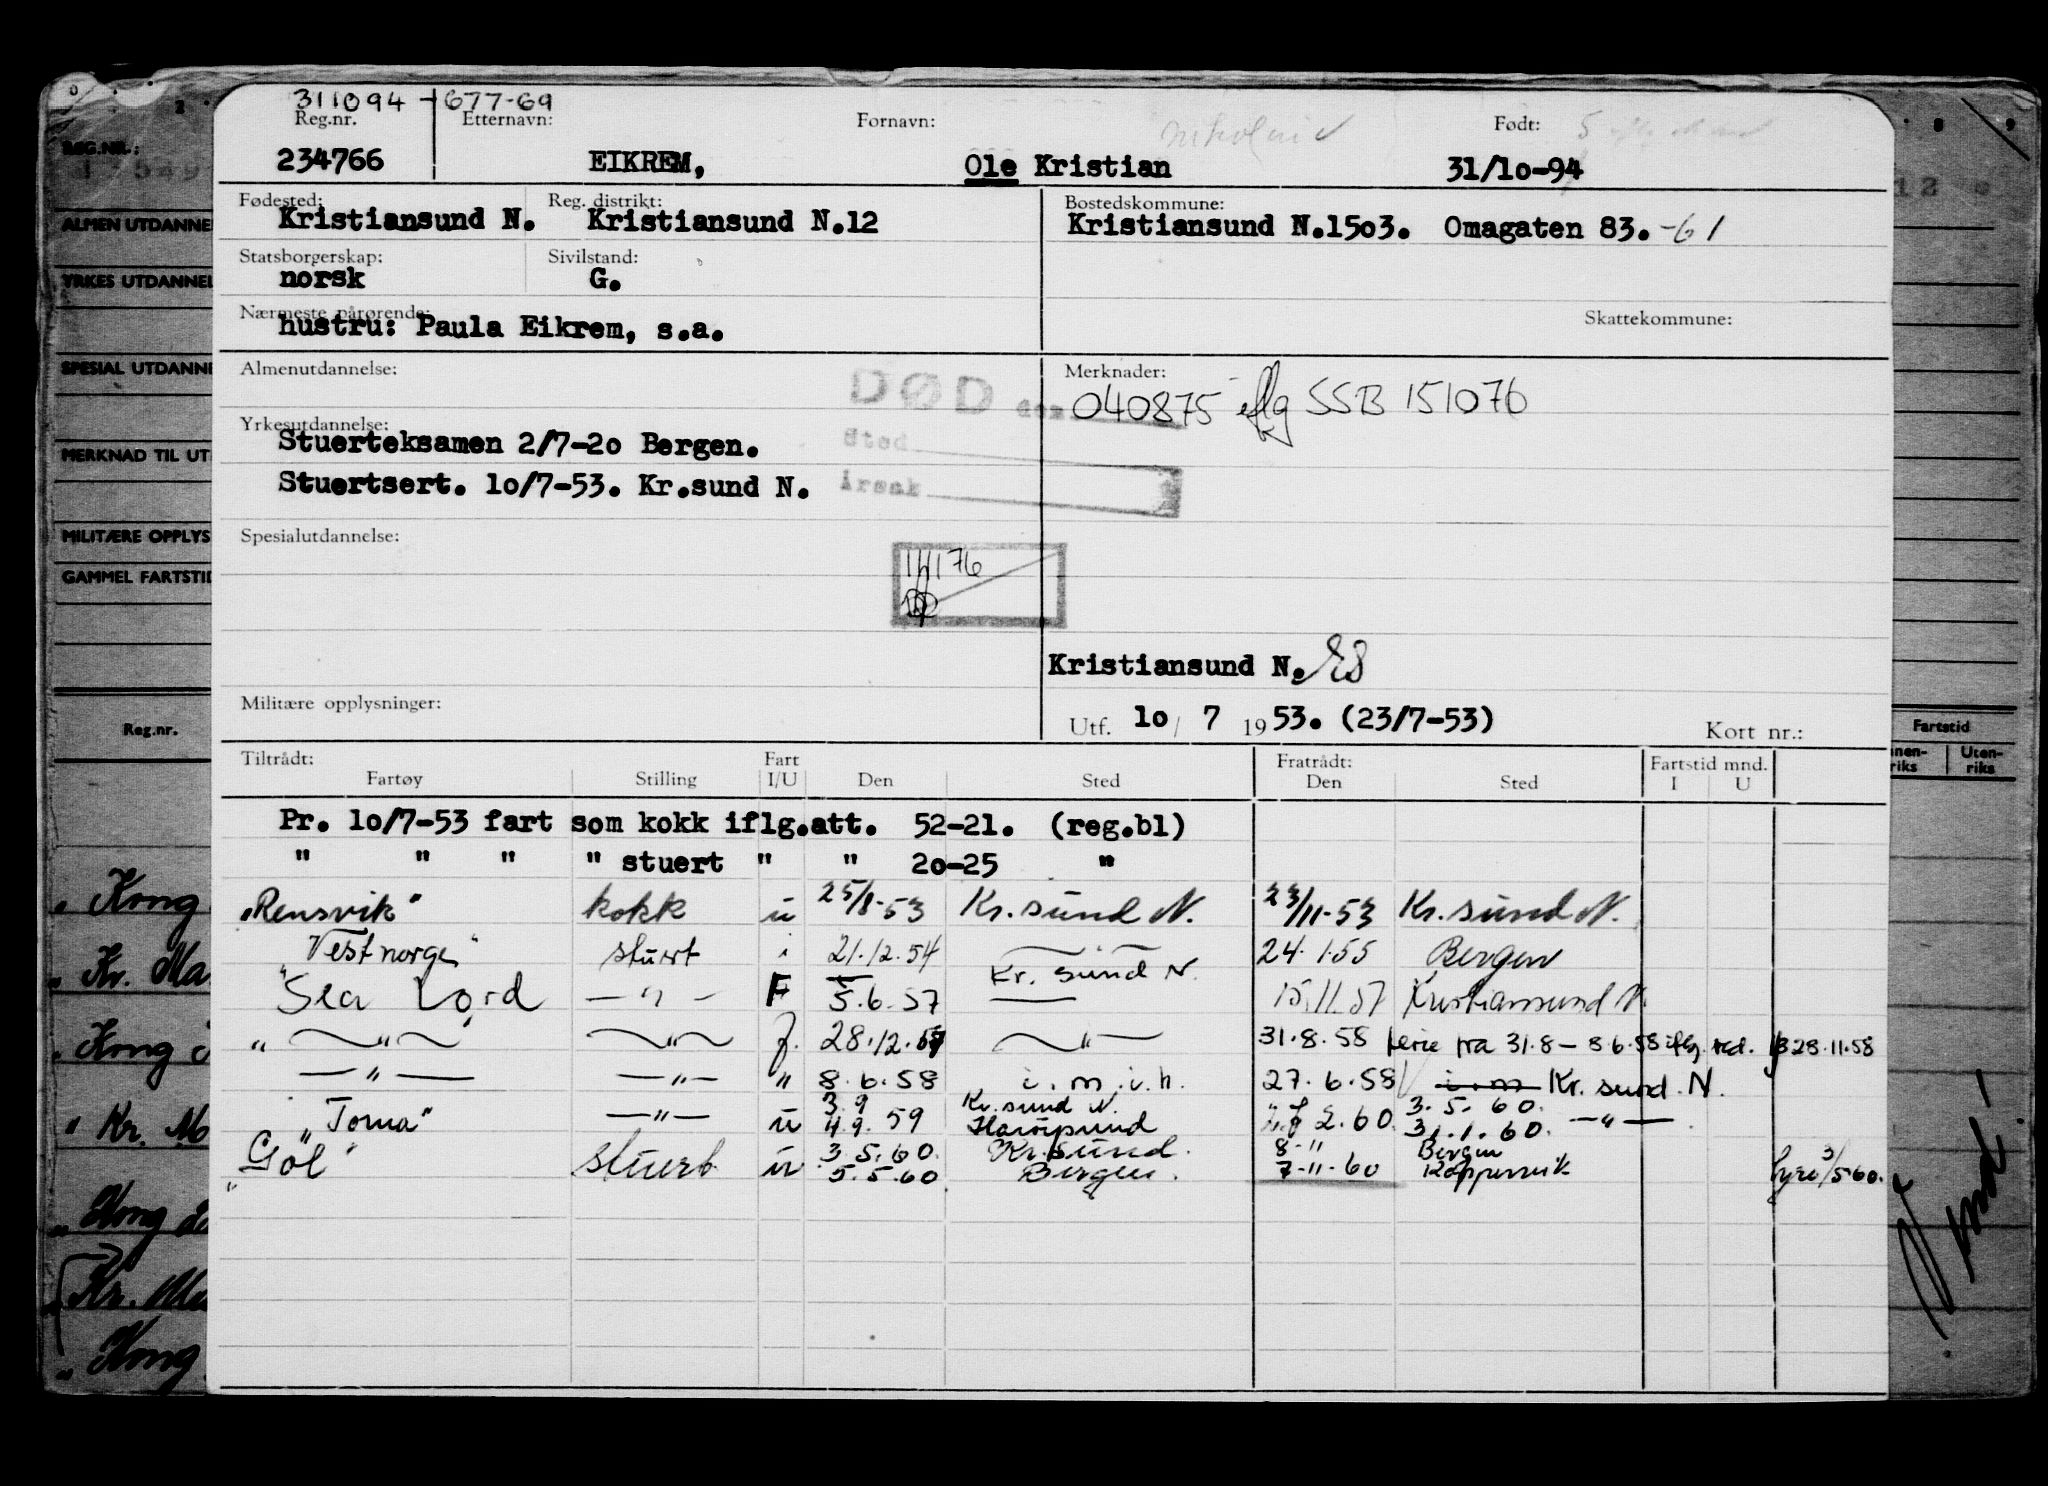 311094 - 677-69
Reg.nr. Etternavn: Fornavn: Født:
234766 EIKREM, Ole Kristian 31/10-94
Fødested: Reg. distrikt: Bostedskommune:
Kristiansund N. Kristiansund N.12 Kristiansund N.1503. Omagaten 83. -61
Statsborgerskap: Sivilstand:
norsk G.
Nærmeste pårørende: Skattekommune:
hustru: Paula Eikrem, s.a.
Almenutdannelse: Merknader:
DØD den 040875 iflg SSB 151076
Yrkesutdannelse:
Stuerteksamen 2/7-20 Bergen. Sted
Stuertsert. 10/7-53. Kr.sund N. Årsak
Spesialutdannelse:
Kristiansund N.
Militære opplysninger: Utf. 10/ 7 1953. (23/7-53) Kort nr.:
Tiltrådt: Fart Fratrådt: Fartstid mnd.
Fartøy Stilling I/U Den Sted Den Sted I U
Pr. 10/7-53 fart som kokk iflg.att. 52-21. (reg.bl)
" " " " stuert " " 20-25 "
"Rensvik" kokk u 25/8-53 Kr.sund N. 23/11-53 Kr.sund N.
"Vestnorge" stuert i 21.12.54 24.1.55 Bergen
"Sea Lord — " — F 5.6.57 Kr. sund N. 15.11.57 Kristiansund N.
" — " — — " — f. 28.12.57 — " — 31.8.58 ferie fra 31.8 - 8.6.58 iflg. red. 28.11.58
— " — — " — " 8.6.58 i.m.i.h. 27.6.58 i.m Kr. sund. N.
"Torna" — " — u 3.9 4.9.59 Kr.sund N. Harøysund 2.60. 3.5.60. 31.1.60. — " —
"Gol" stuert u 3.5.60. 5.5.60 Kr.sund. Bergen. 8-11 7-11-60 Bergen Koppervik hyre 3/5-60.
REG.NR.:
ALMEN UTDANNE
YRKES UTDANNEL
SPESIAL UTDANN
MERKNAD TIL UT
MILITÆRE OPPLYS
GAMMEL FARTSTI
Reg.nr.
" Kong
" Kr. Ma
" Kong
" Kr. M
" Kong
Kr. Ma
" Kong
Fartstid
nen- Uten-
riks riks